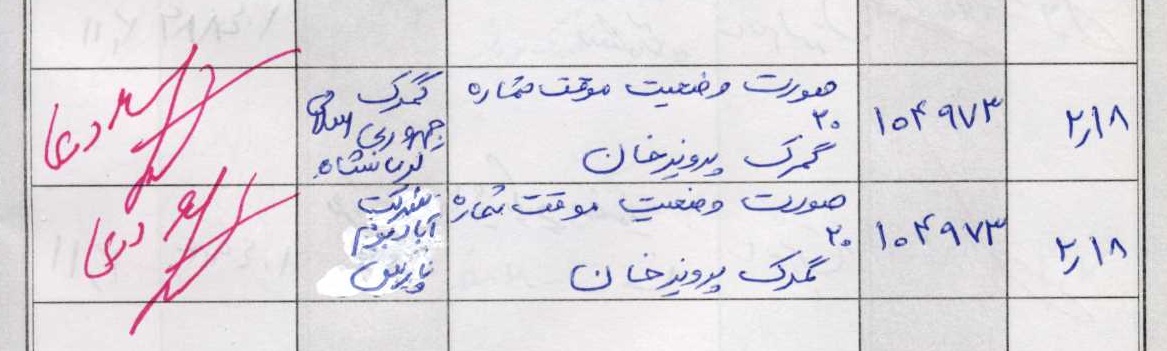 ۲٫۱۸
۱۰۴۹۷۳
صورت وضعیت موقت شماره
۲۰
گمرک پرویزخان
گمرک
جمهوری اسلامی
کرمانشاه
۲٫۱۸
۱۰۴۹۷۳
صورت وضعیت موقت شماره
۲۰
گمرک پرویزخان
شرکت
آباد بوم
پارس